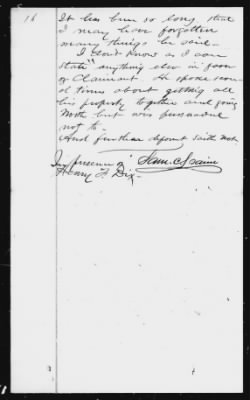 16
It has been so long that
I may have forgotten
many things he said -
I don't know as I can
state anything else in favor
of Claimant. He spoke sever-
al times about getting all
his property together and going
North but was persuaded
not to.
And further deponent saith not.
In presence of Saml C Spain
Henry F. Dix -